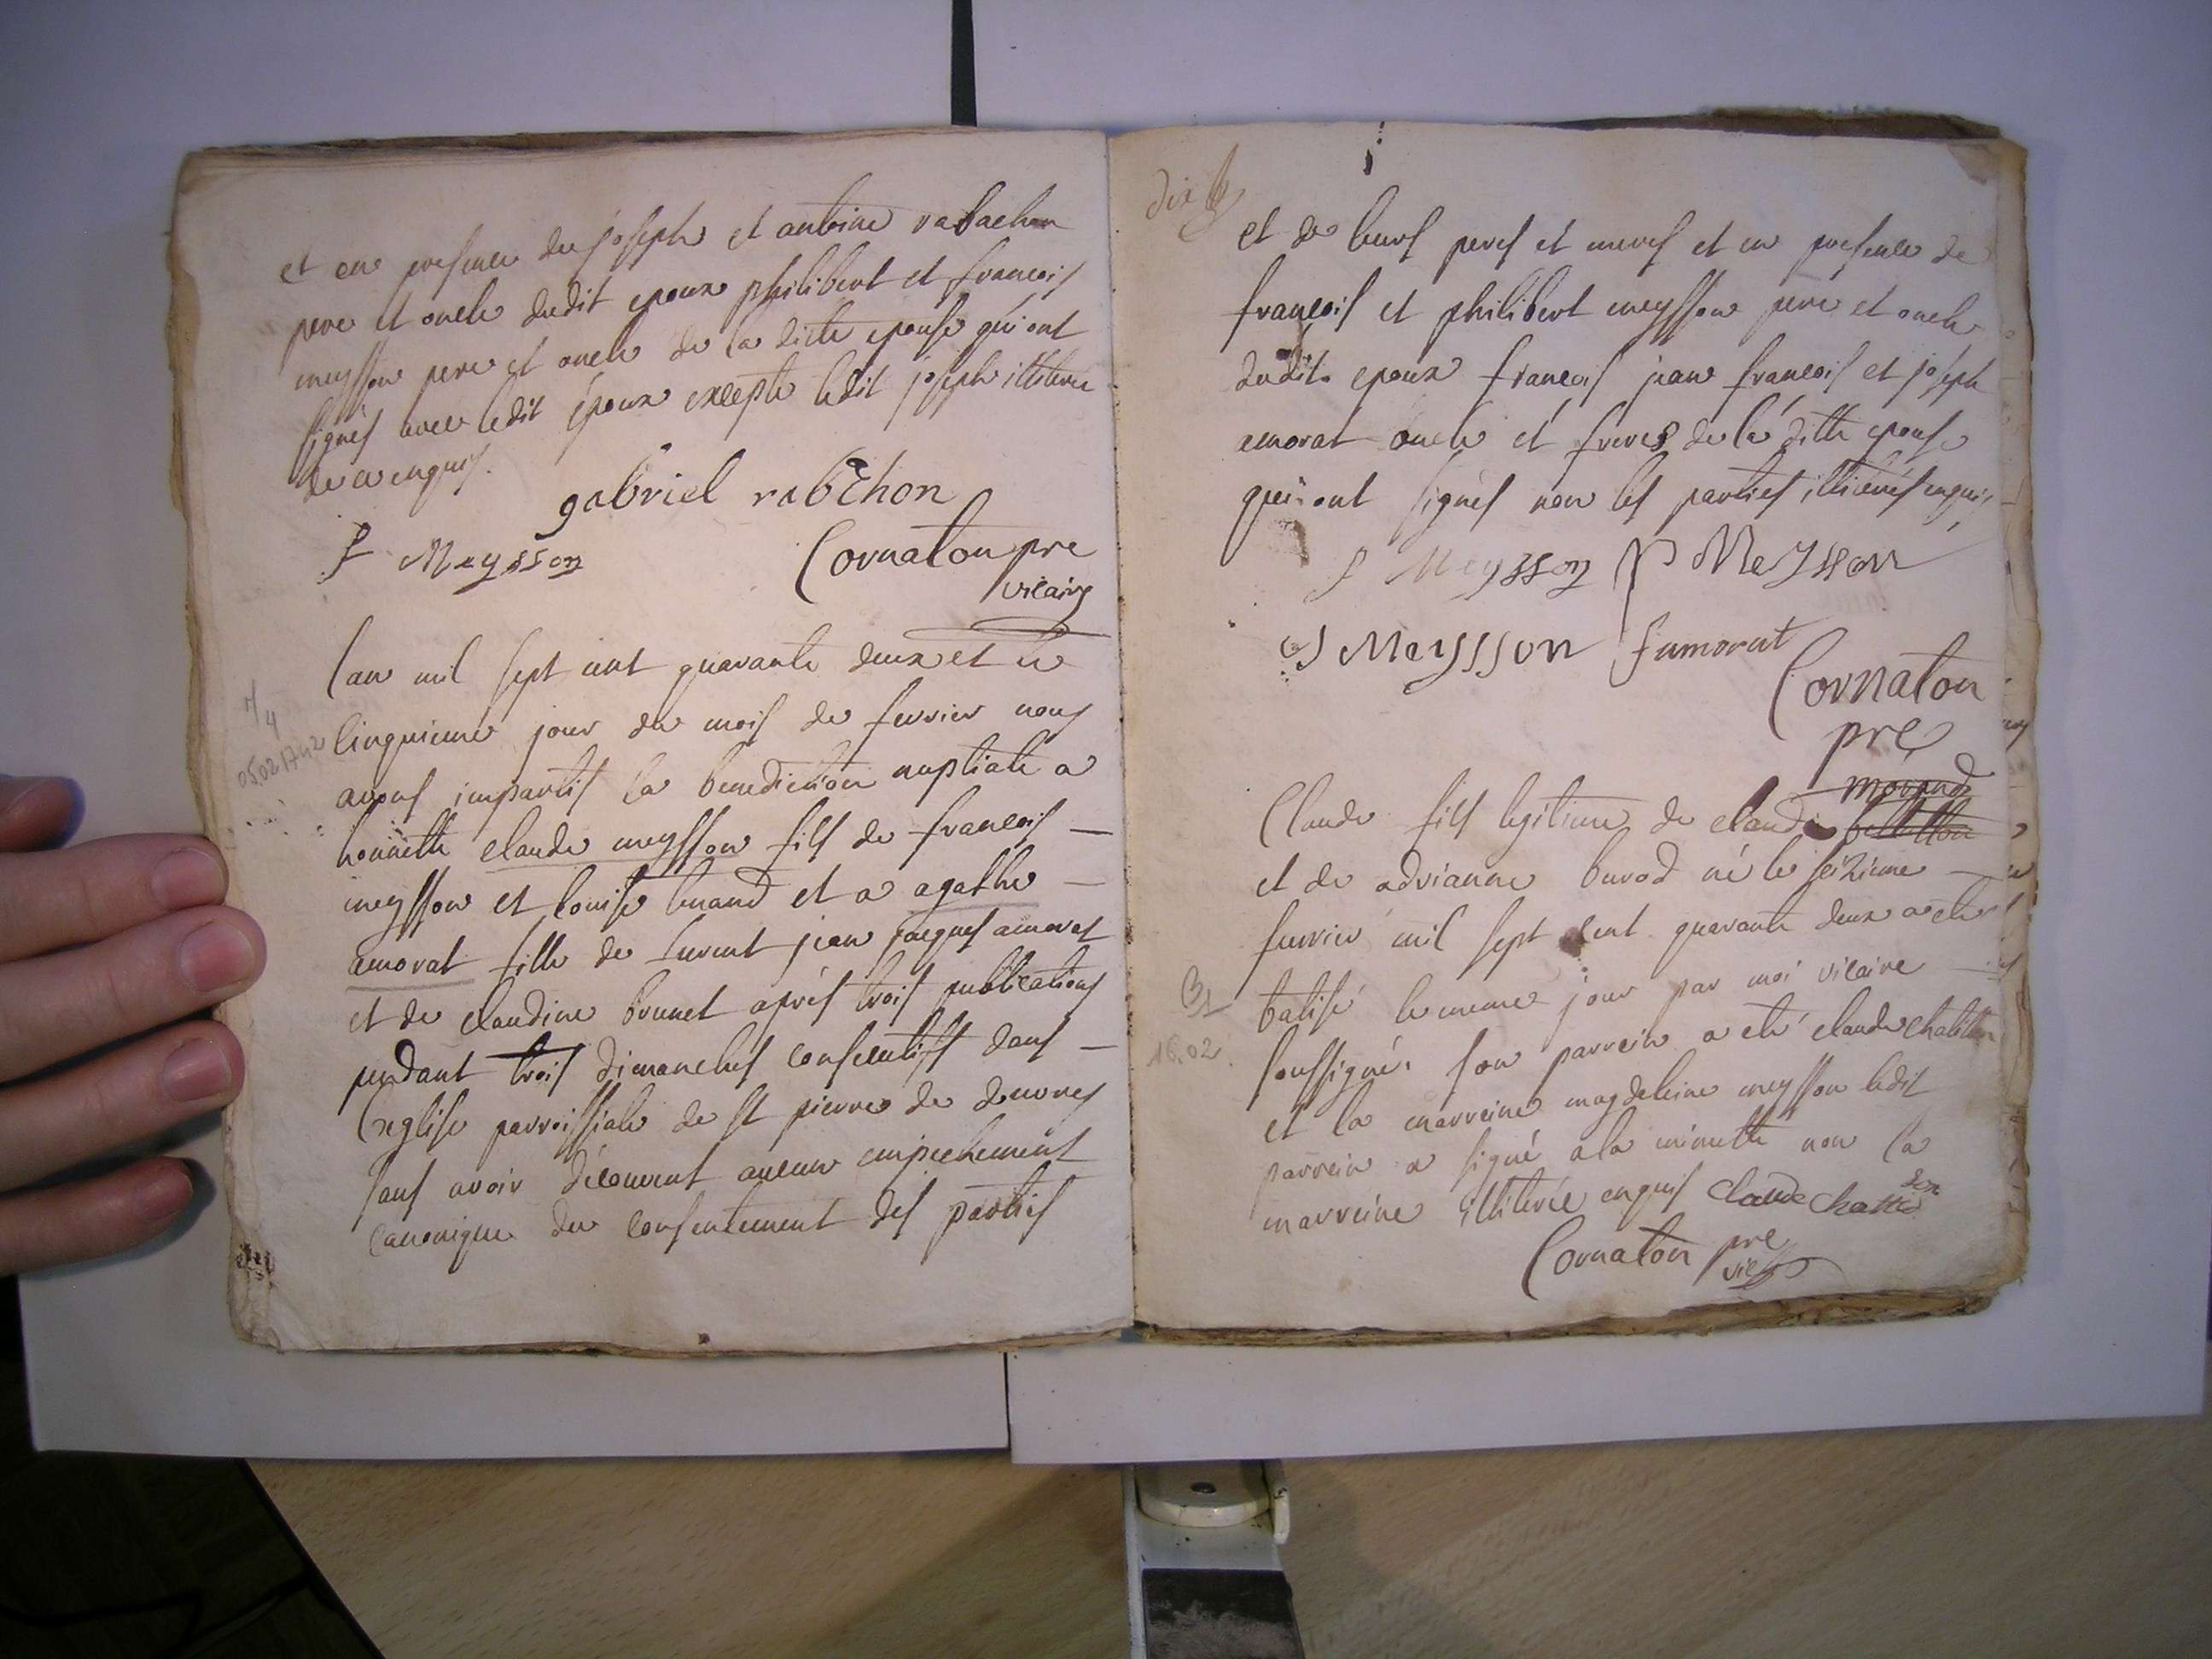 et en presence de joseph et antoine rabachon
pere et oncle dudit epoux philibert et francois
meysson pere et oncle de la ditte epouse qui ont
signés avec ledit époux excepté ledit joseph illiteré
de ce enquis.
gabriel rabchon
f Meysson Cornaton pre
vicaire
lan mil sept cent quarante deux et le
cinquieme jour du mois de fevrier nous
avons impartis la benediction nuptiale a
honnette claude meysson fils de francois
meysson et louise et a agathe
amorat fille de jean jacques amorat
et de claudine brunet aprés trois publications
pendant trois dimanches consecutifs dans
leglise parroissiale de st pierre de druvres
sans avoir découvert aucun empechement
canonique du consentement des parties
7/4
05.02 1742
dix
et de leurs peres et meres et en presence de
francois et philibert meysson pere et oncle
dudit epoux francois jean francois et joseph
amorat oncle et freres de la ditte epouse
qui ont signés non les parties illiterés enquis
f Meysson P Meysson
J Meysson f amorat
Cornaton
pre
morand
Claude fils legitime de claude
et de adrianne burod né le seizieme
fevrier mil sept cent quarante deux a eté
batisé le meme jour par moi vicaire
soussigné. son parrein a eté claude chatillon
et la marreine magdeleine meysson ledit
parrein a signé a la minutte non la
marreine illiterée enquis claude chattil
lon
Cornaton pre
vic
B
16.02.